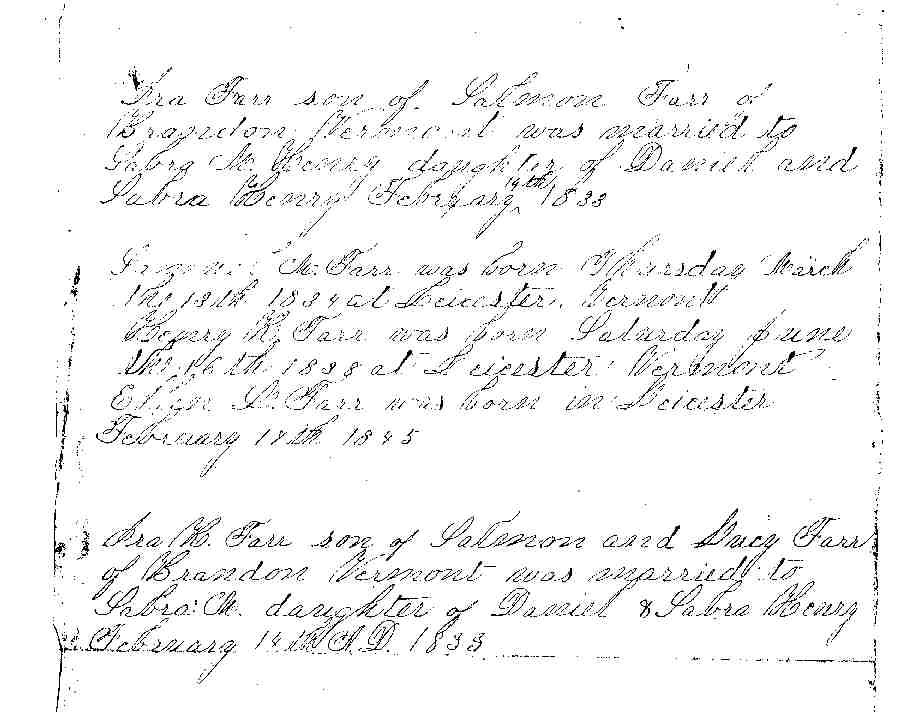 Ira Farr son of Salmon Farr of
Brandon, Vermont was married to
Sabra M. Henry daughter of Daniel and
Sabra Henry February 14th 1833
M. Farr was born Thursday March
the 13th 1834 at Leicester, Vermont
Henry K. Farr was born Saturday June
the 16th 1838 at Leicester Vermont
L. Farr was born in Leicester
February 1845
Ira H. Farr son of Salmon and Lucy Farr
of Brandon Vermont was married to
Sabra M. daughter of Daniel & Sabra Henry
February 14th A.D. 1833